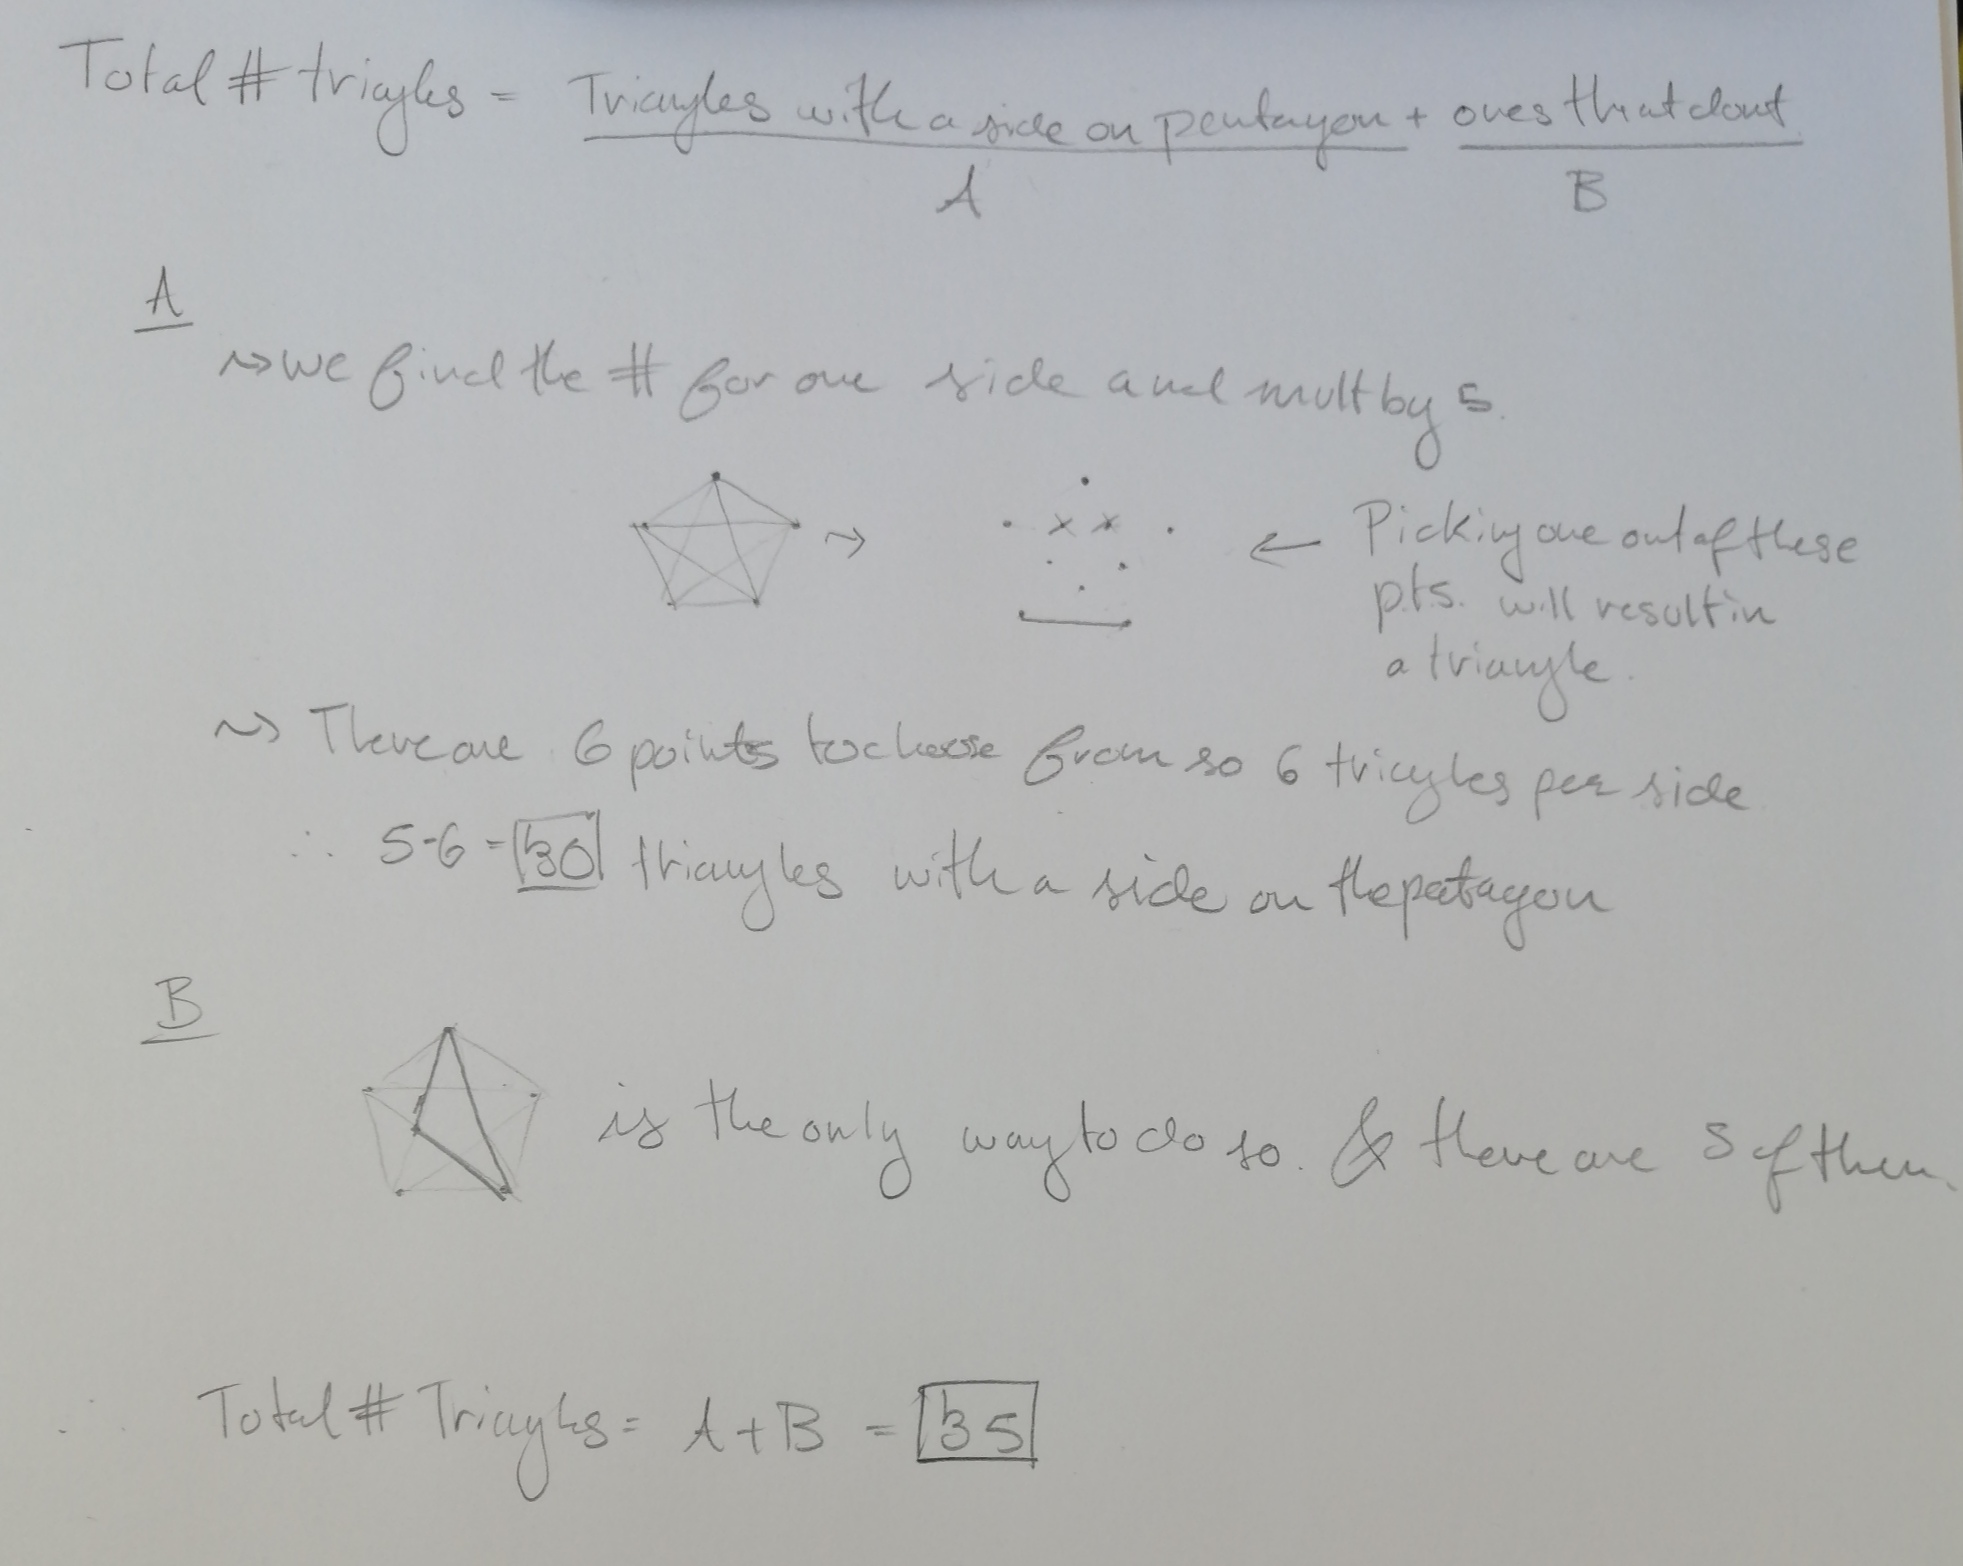 Total # triangles = Triangles with a side on pentagon + ones that dont.
A B
A
~> we find the # for one side and mult by 5.
~> x x ← Picking one out of these
pts. will result in
a triangle.
~> There are 6 points to choose from so 6 triangles per side
∴ 5·6 = 30 triangles with a side on the pentagon
B
is the only way to do so. & there are 5 of them.
Total # Triangles = A + B = 35